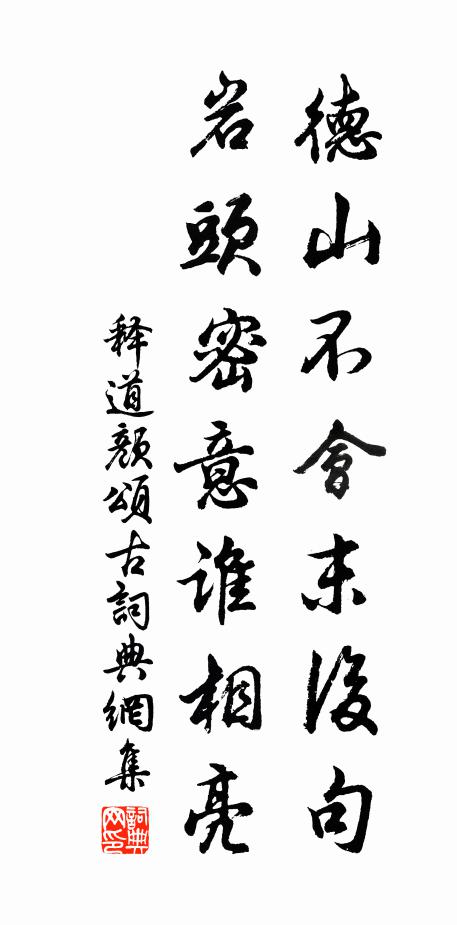 德山不會末後句
岩頭密意誰相亮
释道顏頌古詞典網集
詞典網印